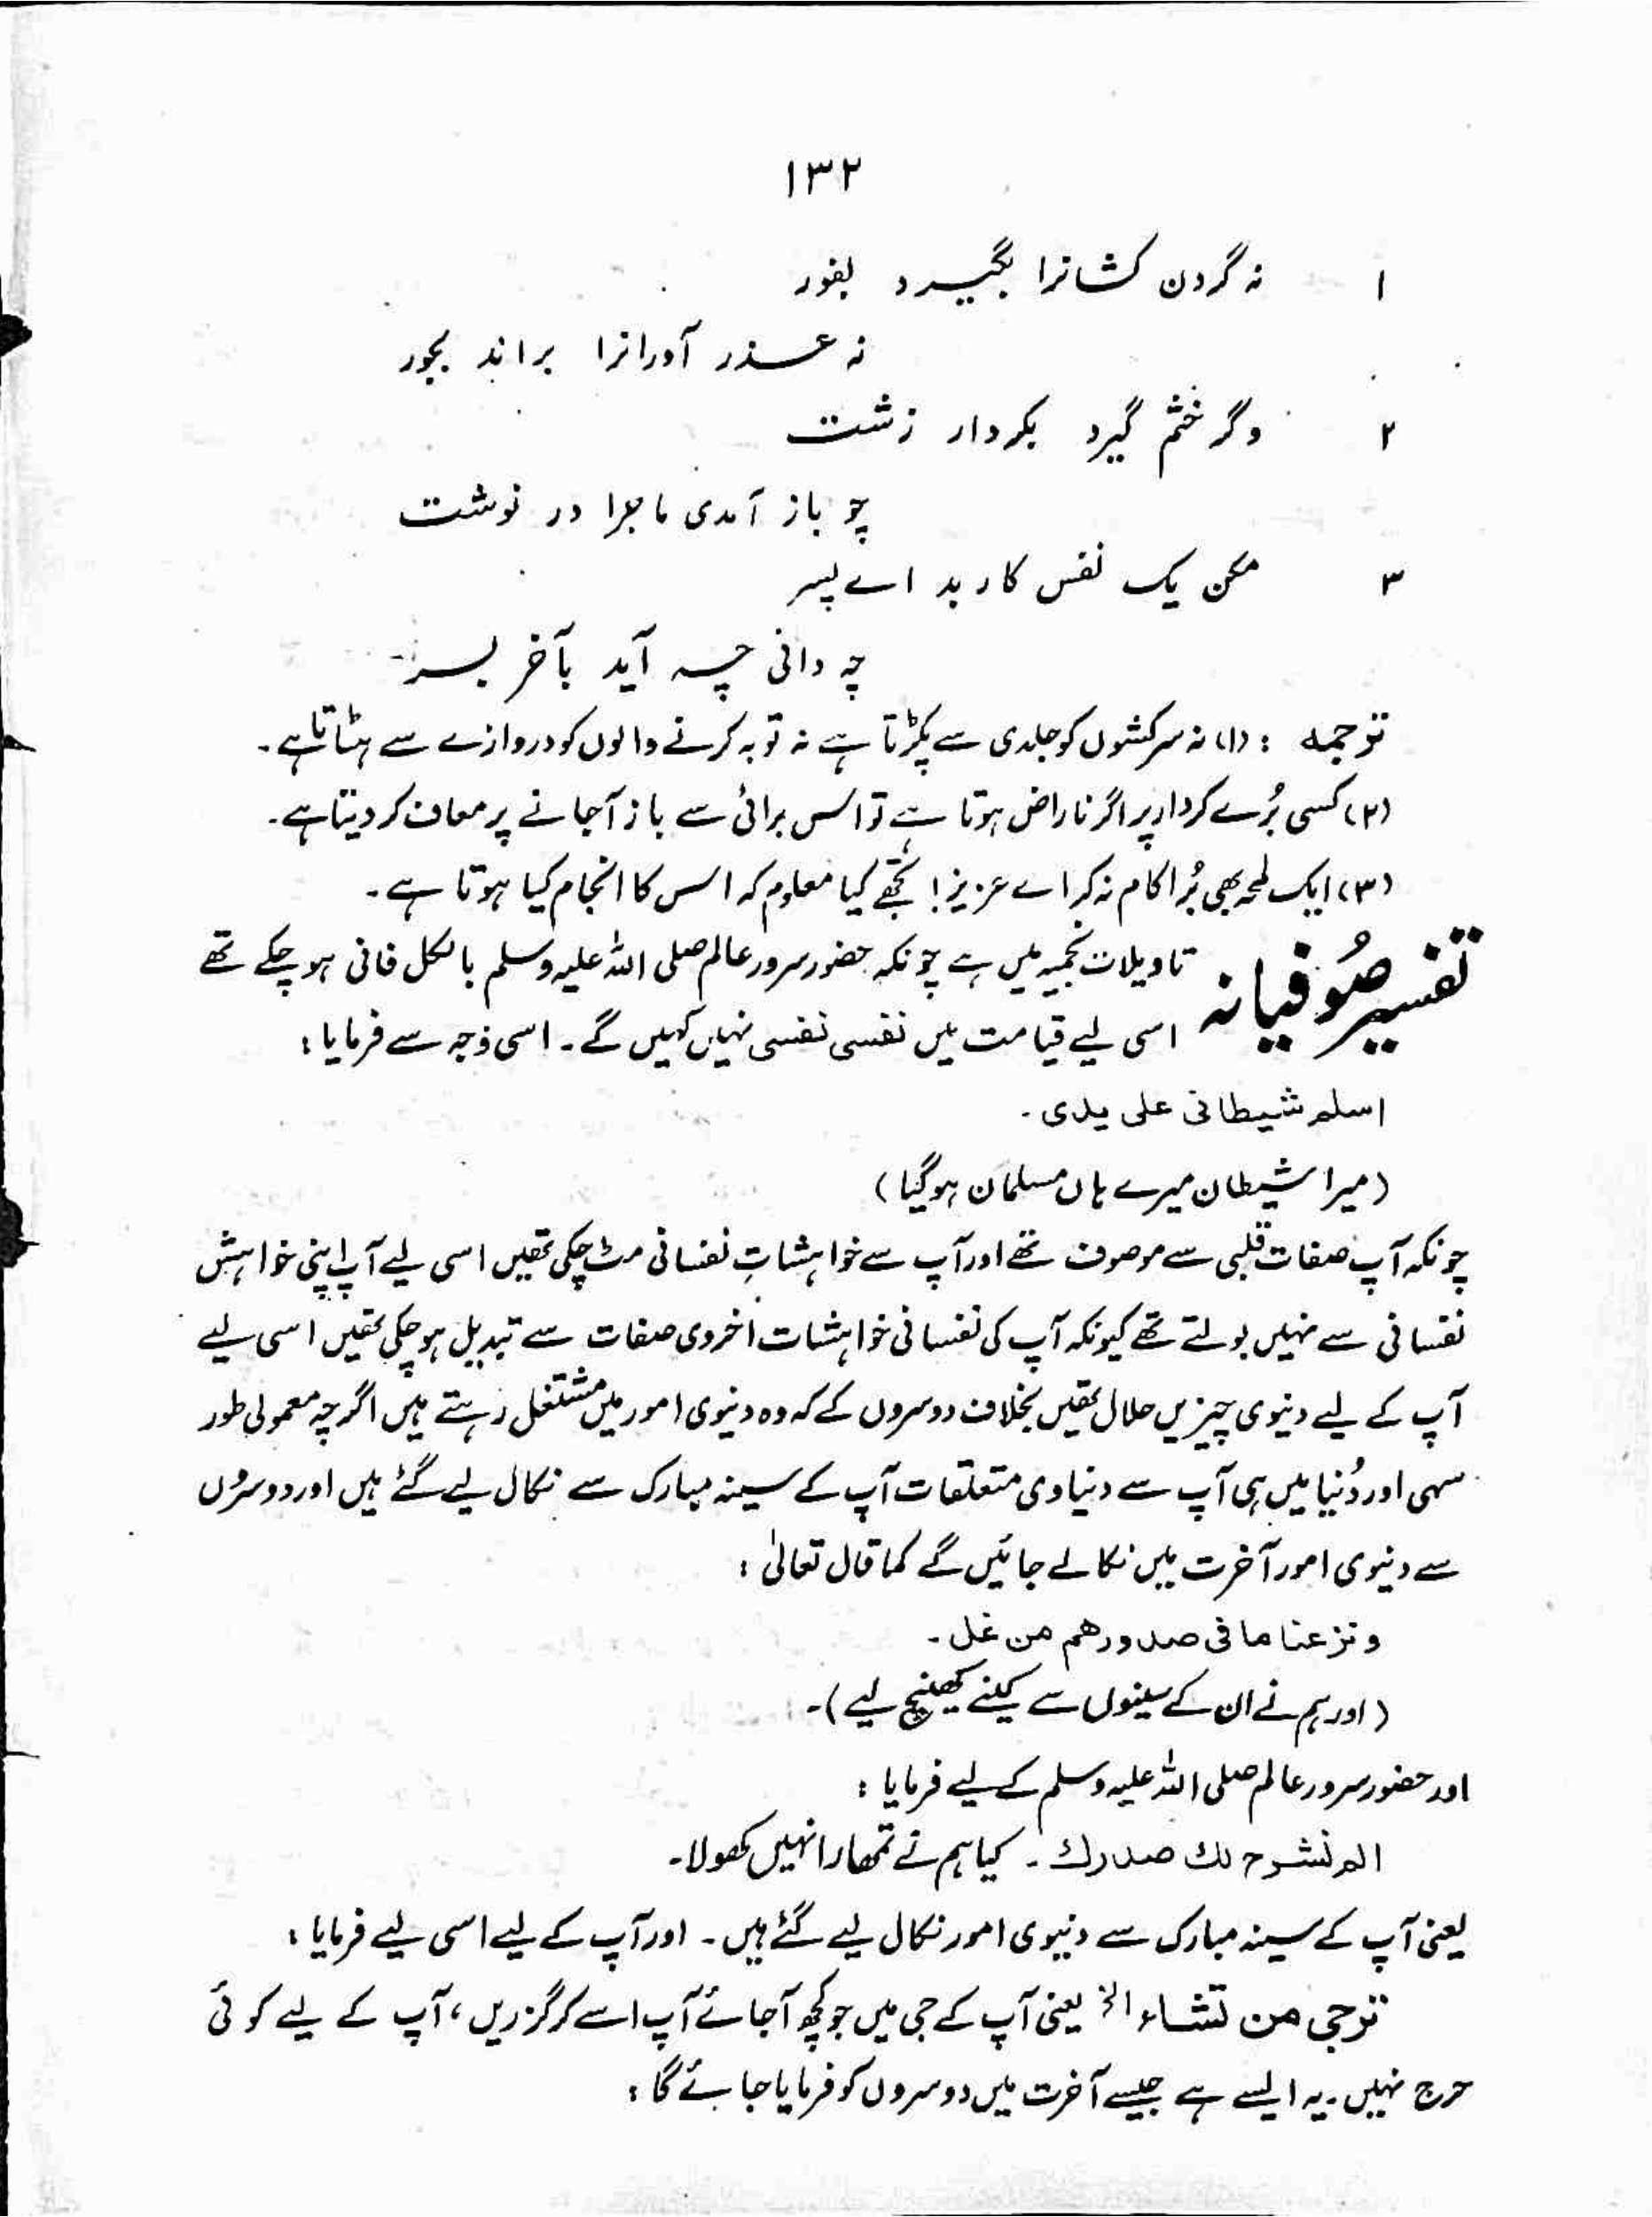 ۱۳۲
۱ نہ گردن کشانرا بگیرد بفور
نہ عذر آورانرا براند بجور
۲ وگر خشم گیرد بکردار زشت
چو باز آمدی ماجرا در نوشت
۳ مکن یک نفس کار بد اے پسر
چہ دانی چہ آید بآخر بسر
ترجمہ : (۱) نہ سرکشوں کو جلدی سے پکڑتا ہے نہ توبہ کرنے والوں کو دروازے سے ہٹاتا ہے۔
(۲) کسی بُرے کردار پر اگر ناراض ہوتا ہے تو اس برائی سے باز آجانے پر معاف کر دیتا ہے۔
(۳) ایک لمحہ بھی بُرا کام نہ کر اے عزیز! تجھے کیا معلوم کہ اس کا انجام کیا ہوتا ہے۔
تفسیر صُوفیانہ تاویلات نجمیہ میں ہے چونکہ حضور سرور عالم صلی اللہ علیہ وسلم بالکل فانی ہو چکے تھے
اسی لیے قیامت میں نفسی نفسی نہیں کہیں گے۔ اسی وجہ سے فرمایا :
اسلم شیطانی علی یدی۔
(میرا شیطان میرے ہاں مسلمان ہوگیا)
چونکہ آپ صفات قلبی سے موصوف تھے اور آپ سے خواہشاتِ نفسانی مٹ چکی تھیں اسی لیے آپ اپنی خواہش
نفسانی سے نہیں بولتے تھے کیونکہ آپ کی نفسانی خواہشات اخروی صفات سے تبدیل ہوچکی تھیں اسی لیے
آپ کے لیے دنیوی چیزیں حلال تھیں بخلاف دوسروں کے کہ وہ دنیوی امور میں مشتغل رہتے ہیں اگرچہ معمولی طور
سہی اور دُنیا میں ہی آپ سے دنیاوی متعلقات آپ کے سینہ مبارک سے نکال لیے گئے ہیں اور دوسروں
سے دنیوی امور آخرت میں نکالے جائیں گے کما قال تعالیٰ :
ونزعنا ما فی صدورهم من غل۔
(اور ہم نے ان کے سینوں سے کینے کھینچ لیے)۔
اور حضور سرور عالم صلی اللہ علیہ وسلم کے لیے فرمایا :
الم نشرح لك صدرك۔ کیا ہم نے تمھارا نہیں کھولا۔
یعنی آپ کے سینہ مبارک سے دنیوی امور نکال لیے گئے ہیں۔ اور آپ کے لیے اسی لیے فرمایا :
ترجی من تشاء الخ یعنی آپ کے جی میں جو کچھ آجائے آپ اسے کر گزریں، آپ کے لیے کوئی
حرج نہیں۔ یہ ایسے ہے جیسے آخرت میں دوسروں کو فرمایا جائے گا :